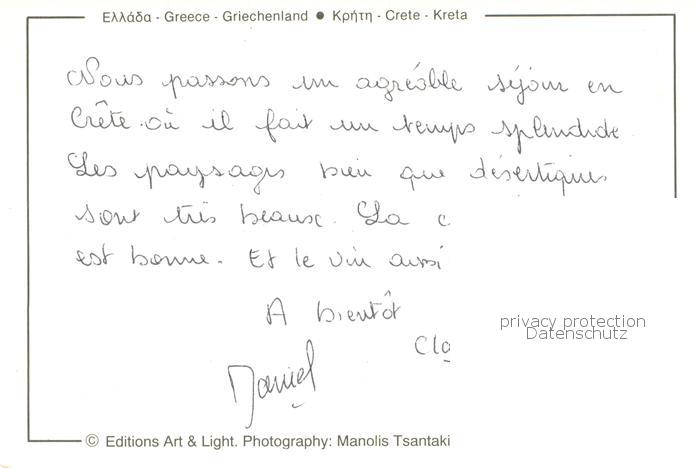 Ελλάδα - Greece - Griechenland ● Κρήτη - Crete - Kreta
Nous passons un agréable séjour en
Crête où il fait un temps splendide
Les paysages bien que désertiques
sont très beaux. La c
est bonne. Et le vin aussi
A bientôt
privacy protection
Datenschutz
Cla
Daniel
© Editions Art & Light. Photography: Manolis Tsantaki